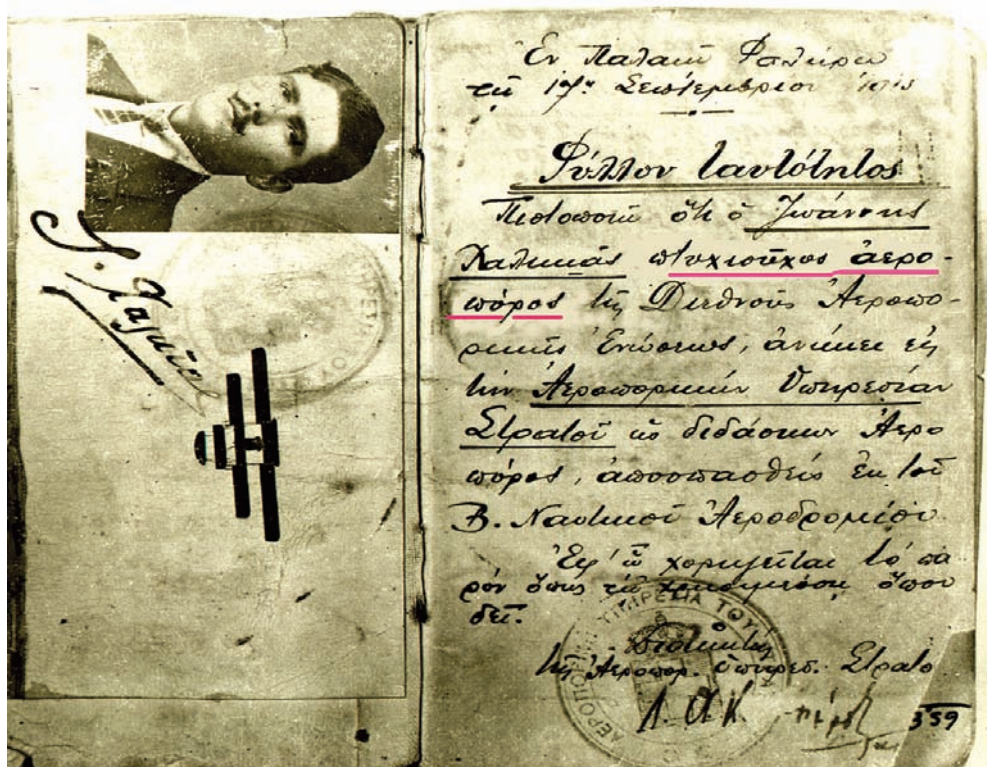 Ι. Χαλκιάς
Ἐν Παλαιῷ Φαλήρῳ
τῇ 17ῃ Σεπτεμβρίου
Φύλλον ταυτότητος
Πιστοποιῶ ὅτι ὁ Ἰωάννης
Χαλκιᾶς πτυχιοῦχος ἀερο-
πόρος τῆς Διεθνοῦς Ἀεροπο-
ρικῆς Ἑνώσεως, ἀνήκει εἰς
τὴν Ἀεροπορικὴν Ὑπηρεσίαν
Στρατοῦ ὡς διδάσκων Ἀερο
πόρος, ἀποσπασθείς ἐκ τοῦ
Β. Ναυτικοῦ Ἀεροδρομίου.
Ἐφ' ᾧ χορηγεῖται τὸ πα
ρόν ὅπως τῷ χρησιμεύσῃ ὅπου
δεῖ.
Ὁ
Διοικητὴς
τῆς Ἀεροπορ. Ὑπηρεσ. Στρατο
359